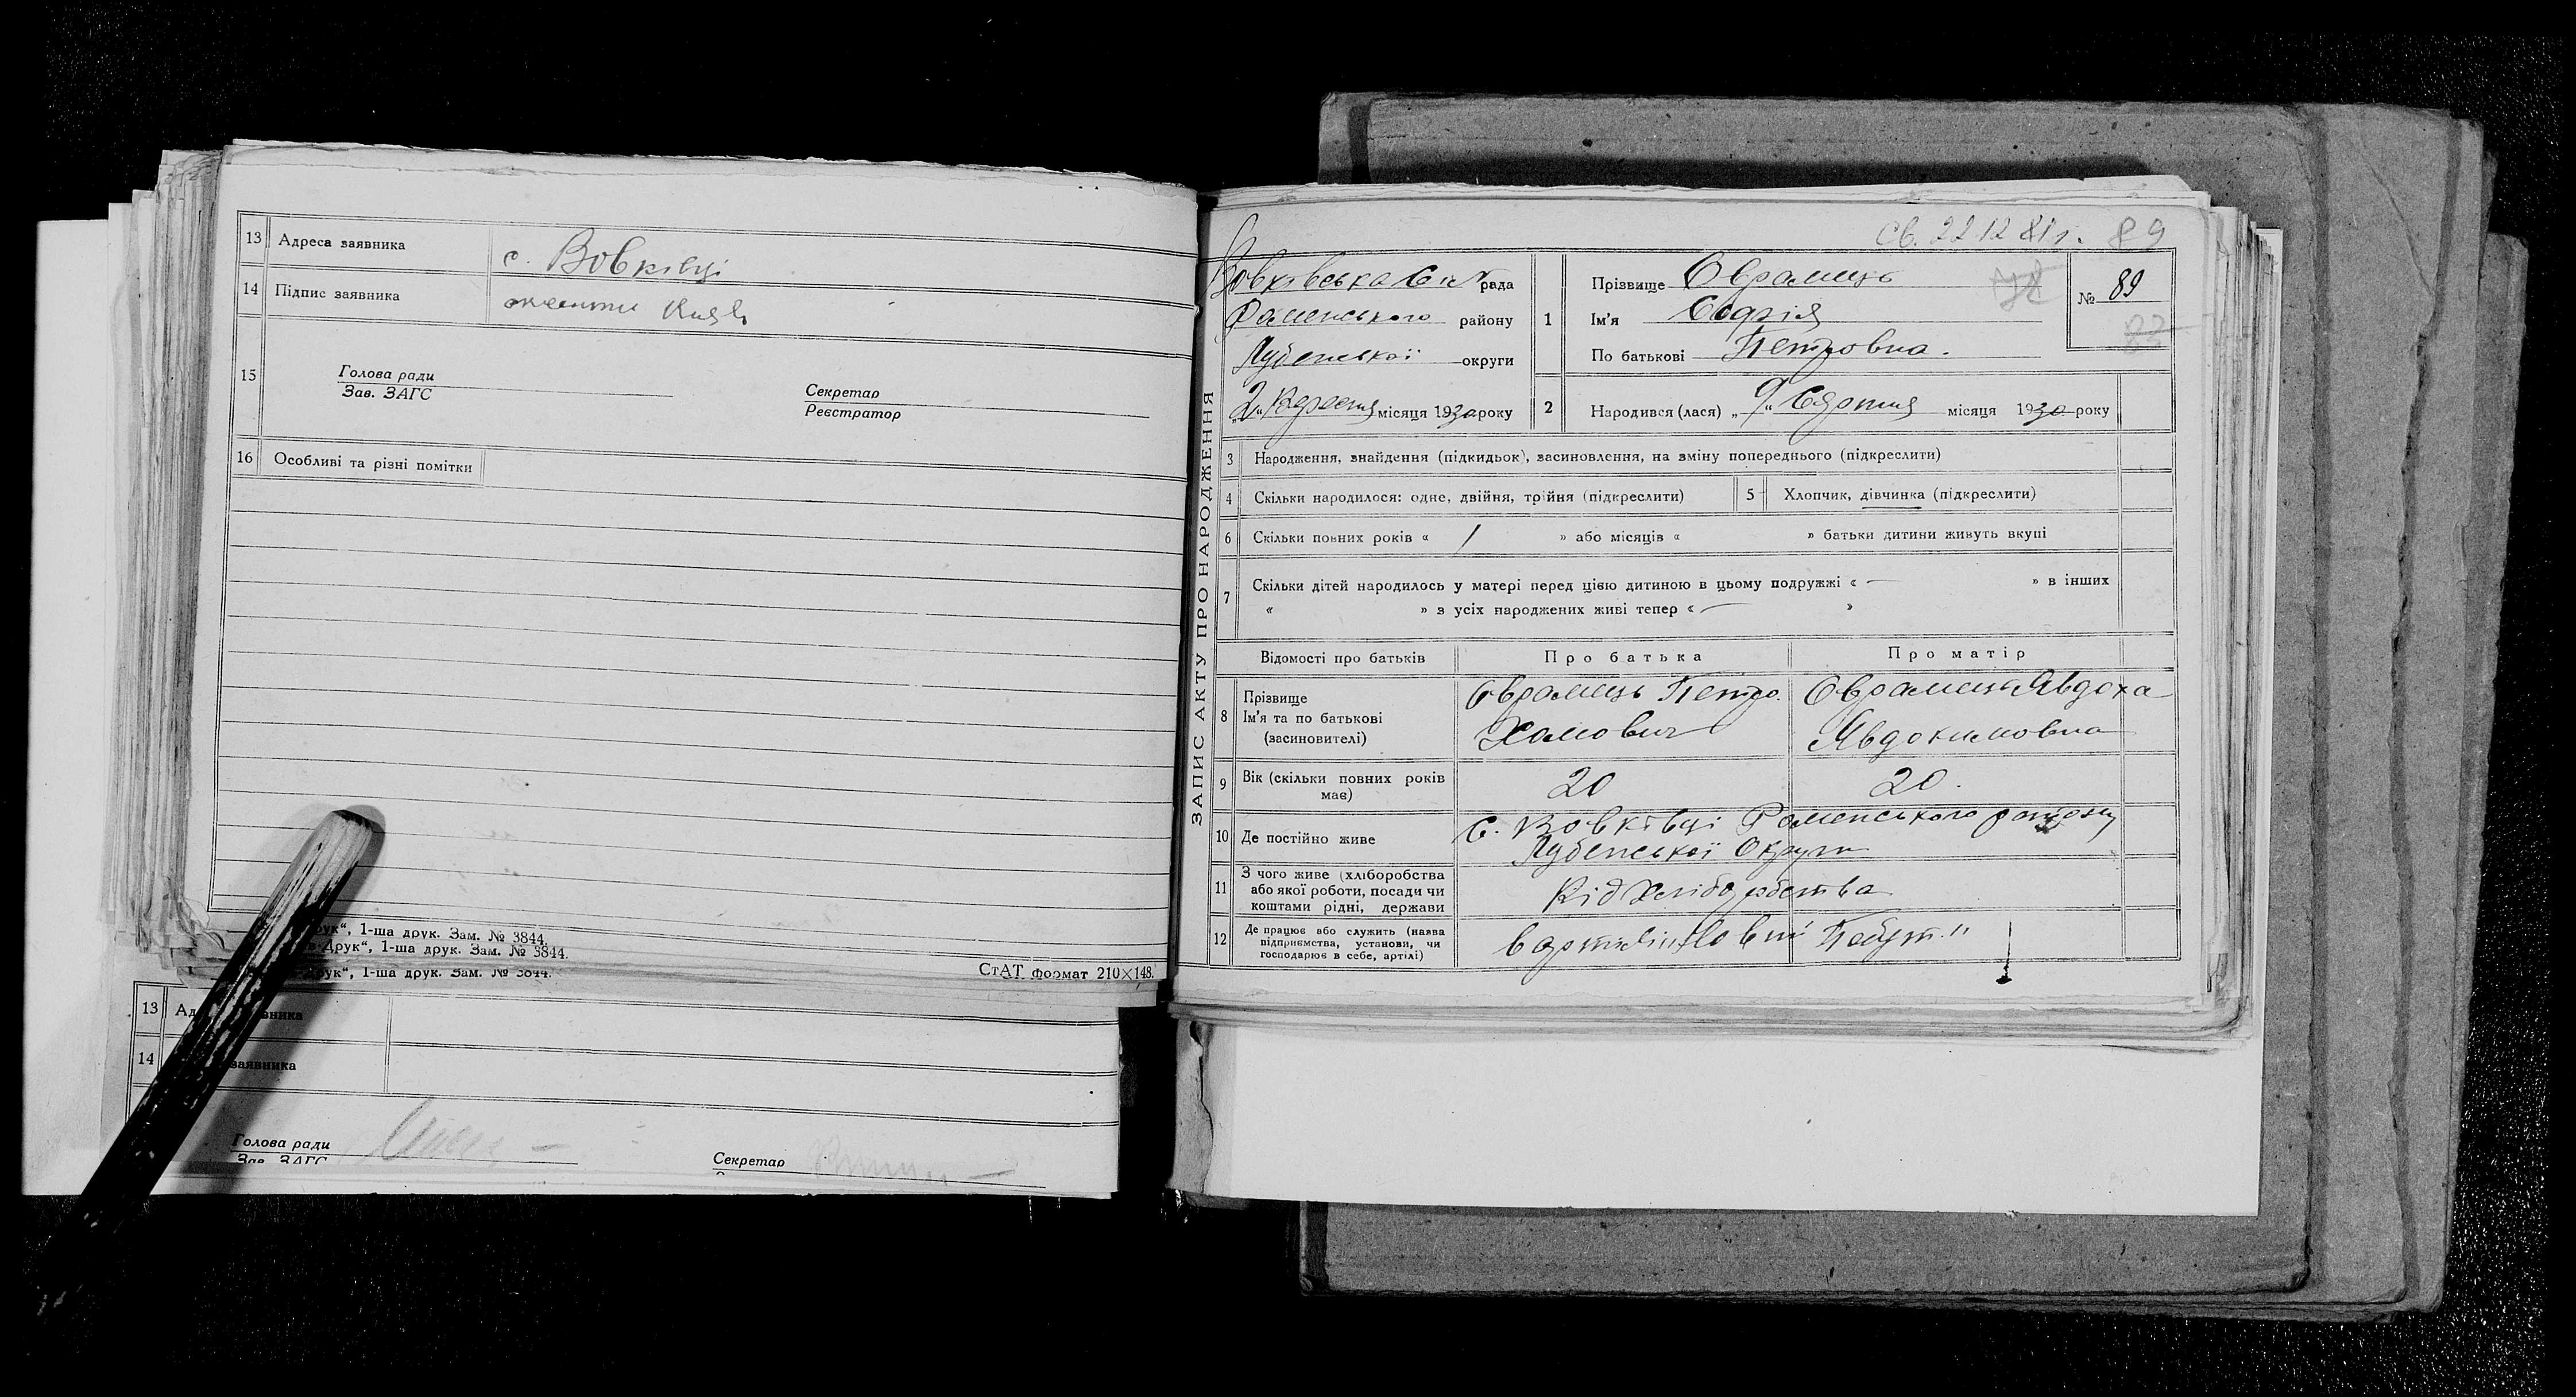 13 Адреса заявника с. Вовківці
14 Підпис заявника
15
Голова ради
Зав. ЗАГС
Секретар
Реєстратор
16 Особливі та різні помітки
друк“, 1-ша друк. Зам. № 3844.
Друк“, 1-ша друк. Зам. № 3844.
друк“, 1-ша друк. Зам. № 3844.
СтАТ формат 210×148.
13
14 заявника
Голова ради
Зав. ЗАГС
Секретар
ЗАПИС АКТУ ПРО НАРОДЖЕННЯ
св. 22 12 81 г. 89
Вовківська Сіл рада
Роменського району
Лубенської округи
„2“ Вересня місяця 1930 року
1 Прізвище Оврамець
Ім'я Софія
По батькові Петровна.
№ 89
2 Народився (лася) „9“ Серпня місяця 1930 року
3 Народження, знайдення (підкидьок), засиновлення, на зміну попереднього (підкреслити)
4 Скільки народилося: одне, двійня, трійня (підкреслити)
5 Хлопчик, дівчинка (підкреслити)
6 Скільки повних років « 1 » або місяців « » батьки дитини живуть вкупі
7 Скільки дітей народилось у матері перед цією дитиною в цьому подружжі « — » в інших
« » з усіх народжених живі тепер « — »
Відомості про батьків Про батька Про матір
8 Прізвище
Ім'я та по батькові
(засиновителі)
Оврамець Петро
Хомович
Оврамець Явдоха
Явдокимовна
9 Вік (скільки повних років
має)
20
20.
10 Де постійно живе
с. Вовківці Роменського району
Лубенської Округи
11 З чого живе (хліборобства
або якої роботи, посади чи
коштами рідні, держави
Від Хліборобства
12 Де працює або служить (назва
підприємства, установи, чи
господарює в себе, артілі)
в артілі „Новий Побут“